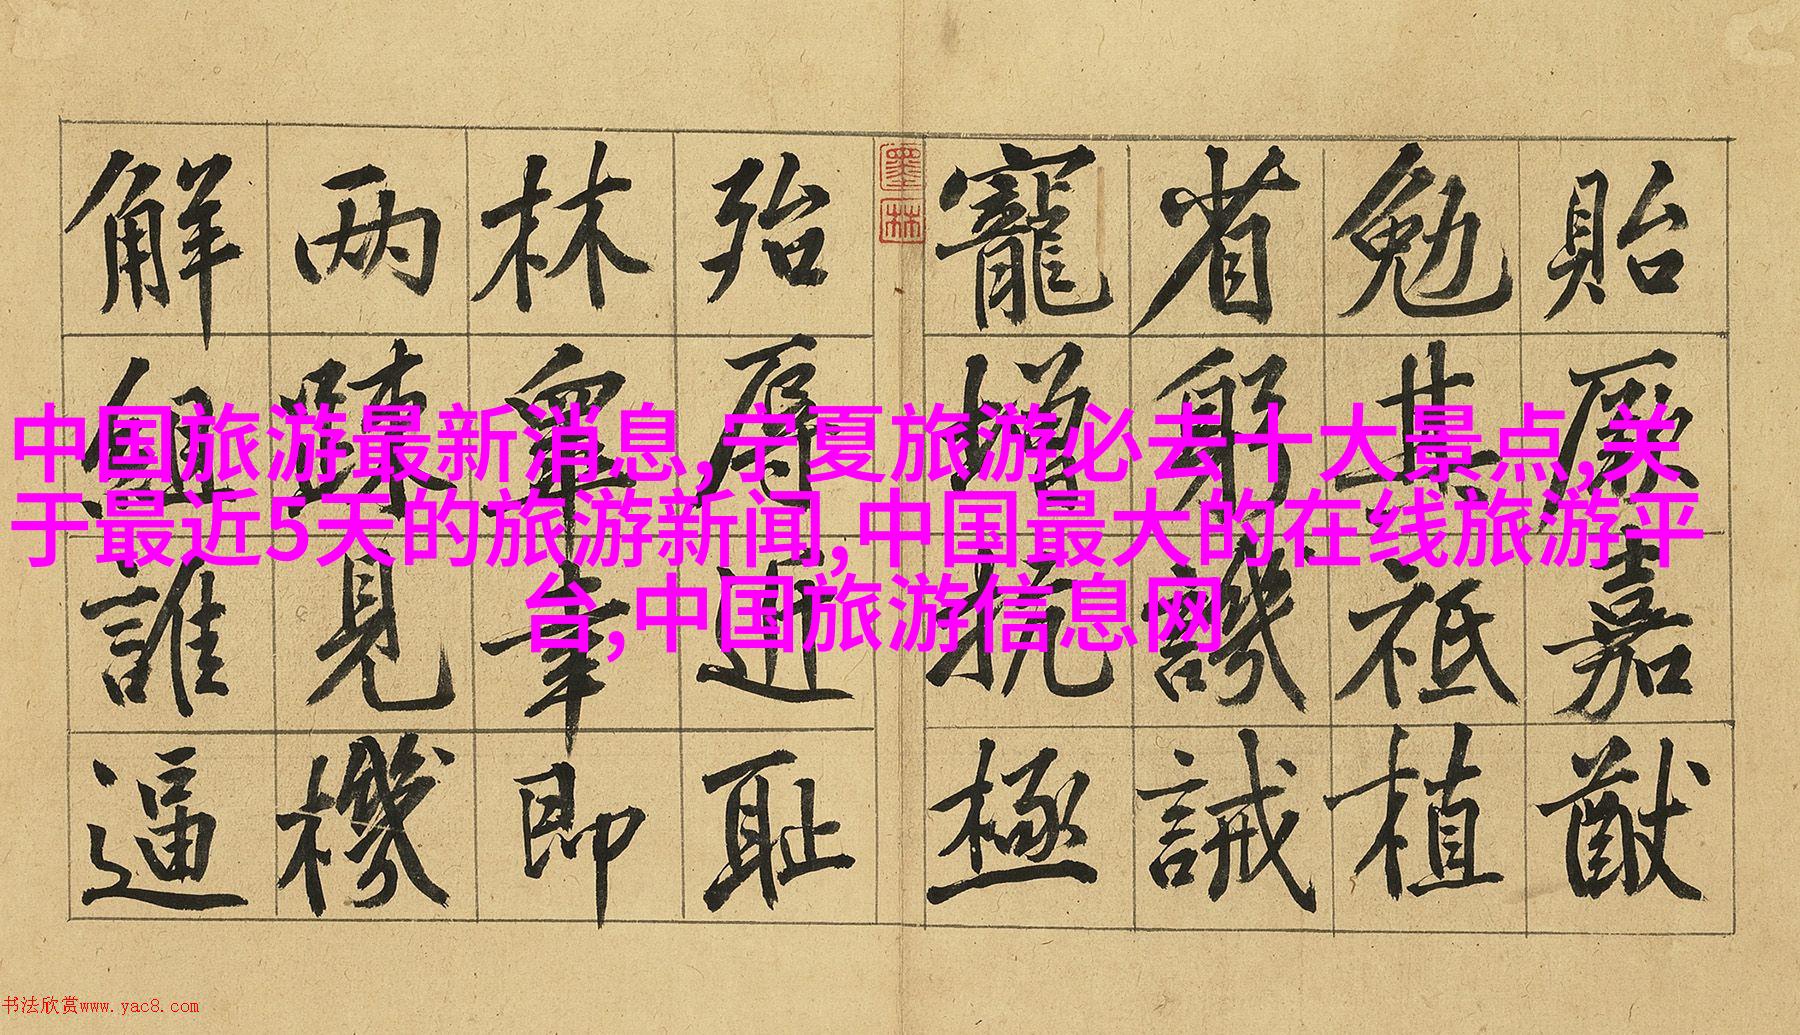 貽厥嘉猷
勉其祗植
省躬譏誡
寵增抗極
墨林
殆辱近耻
林皐幸即
两踈見機
解組誰逼
中国旅游最新消息,宁夏旅游必去十大景点,关
于最近5天的旅游新闻,中国最大的在线旅游平
台,中国旅游信息网
书法欣赏www.yac8.com